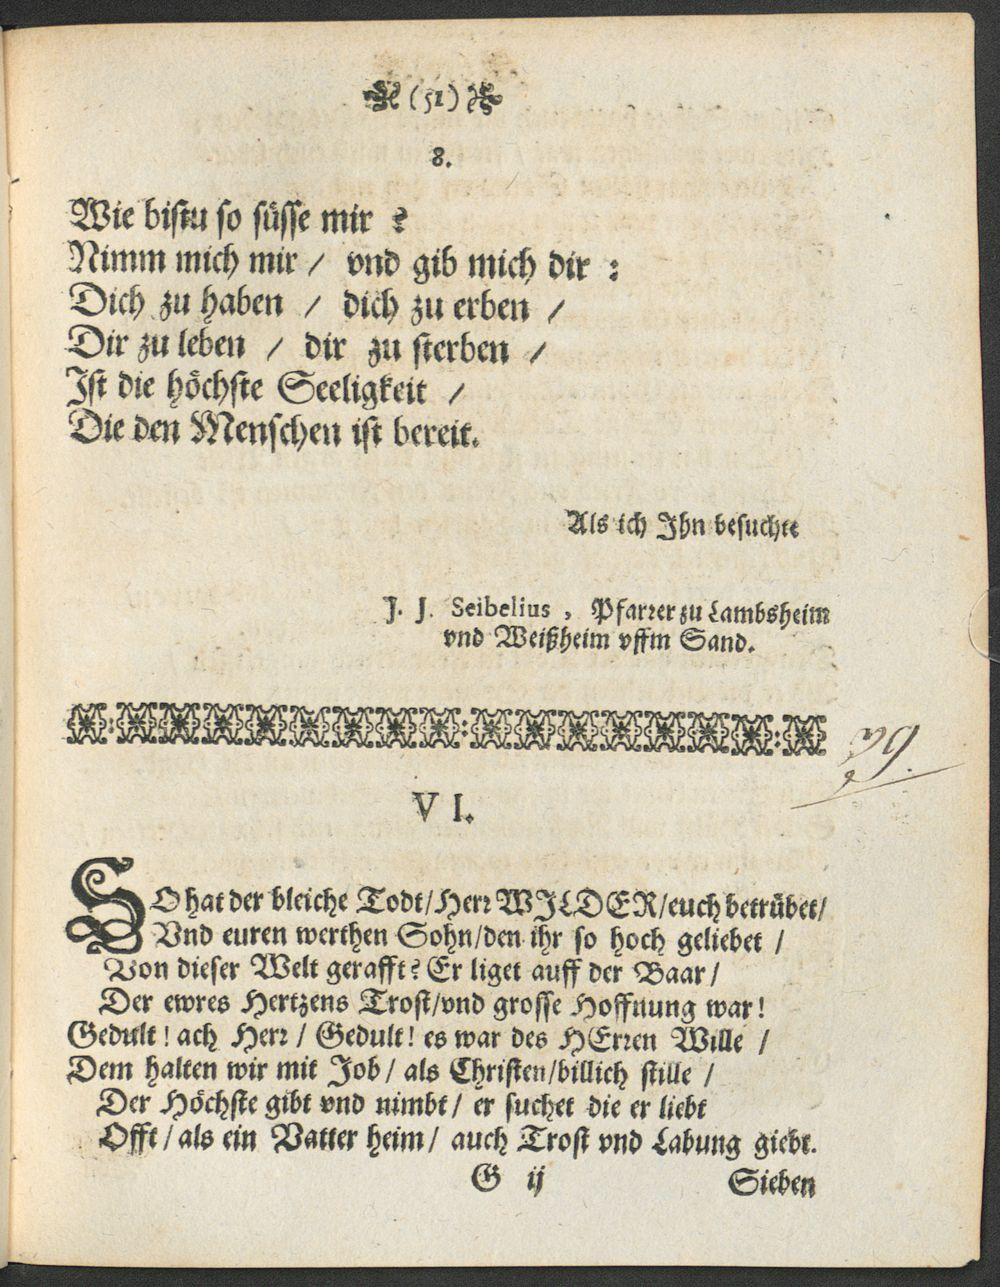 (51)
8.
Wie bistu so süsse mir ?
Nimm mich mir / vnd gib mich dir :
Dich zu haben / dich zu erben /
Dir zu leben / dir zu sterben /
Ist die höchste Seeligkeit /
Die den Menschen ist bereit.
Als ich Ihn besuchte
J. J. Seibelius , Pfarrer zu Lambsheim
vnd Weißheim vffm Sand.
VI.
SO hat der bleiche Todt/Herr WILDER/euch betrübet/
Vnd euren werthen Sohn/den ihr so hoch geliebet /
Von dieser Welt gerafft? Er liget auff der Baar/
Der ewres Hertzens Trost/vnd grosse Hoffnung war!
Gedult! ach Herr / Gedult! es war des HErren Wille /
Dem halten wir mit Job/ als Christen/billich stille /
Der Höchste gibt vnd nimbt/ er suchet die er liebt
Offt/als ein Vatter heim/ auch Trost vnd Labung giebt.
G ij
Sieben